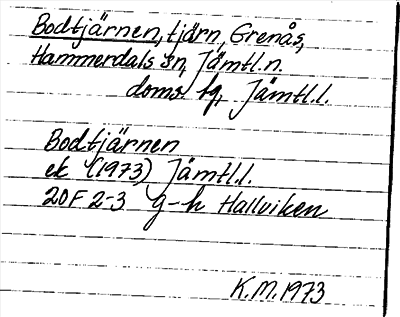 Bodtjärnen, tjärn, Grenås,
Hammerdals sn, Jämtl.n.
doms. tg, Jämtl.l.
Bodtjärnen
ek (1973) Jämtl.l.
20F 2-3 g-h Hallviken
K.M. 1973